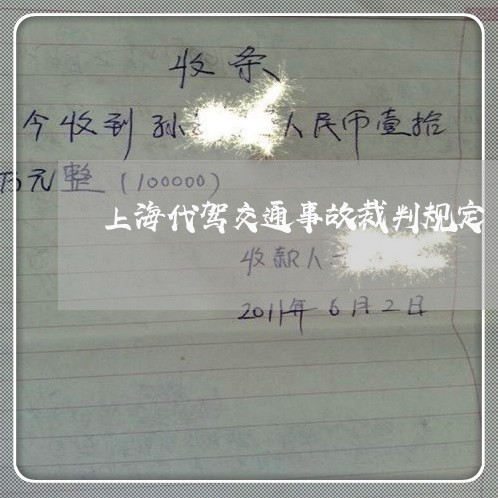 收条
今收到孙 人民币壹拾
万元整(100000)
上海代驾交通事故裁判规定
收款人
2011年6月2日